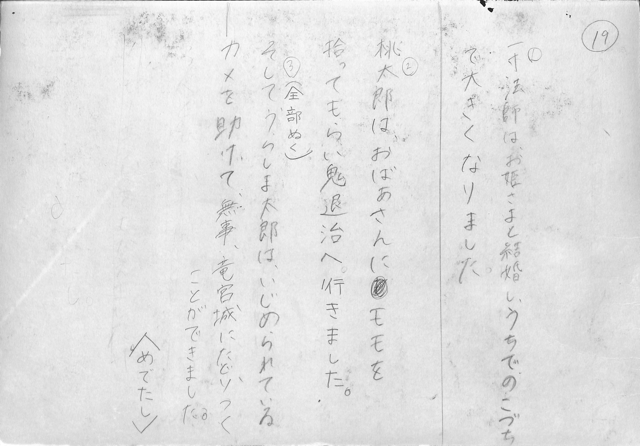 19
① 一寸法師は、お姫さまと結婚しうちでのこづち
で大きくなりました。
② 桃太郎は、おばあさんにモモを
拾ってもらい鬼退治へ行きました。
③ (全部ぬく)
そしてうらしま太郎は、いじめられている
カメを助けて、無事、竜宮城にたどりつく
ことができました。
〈めでたし〉